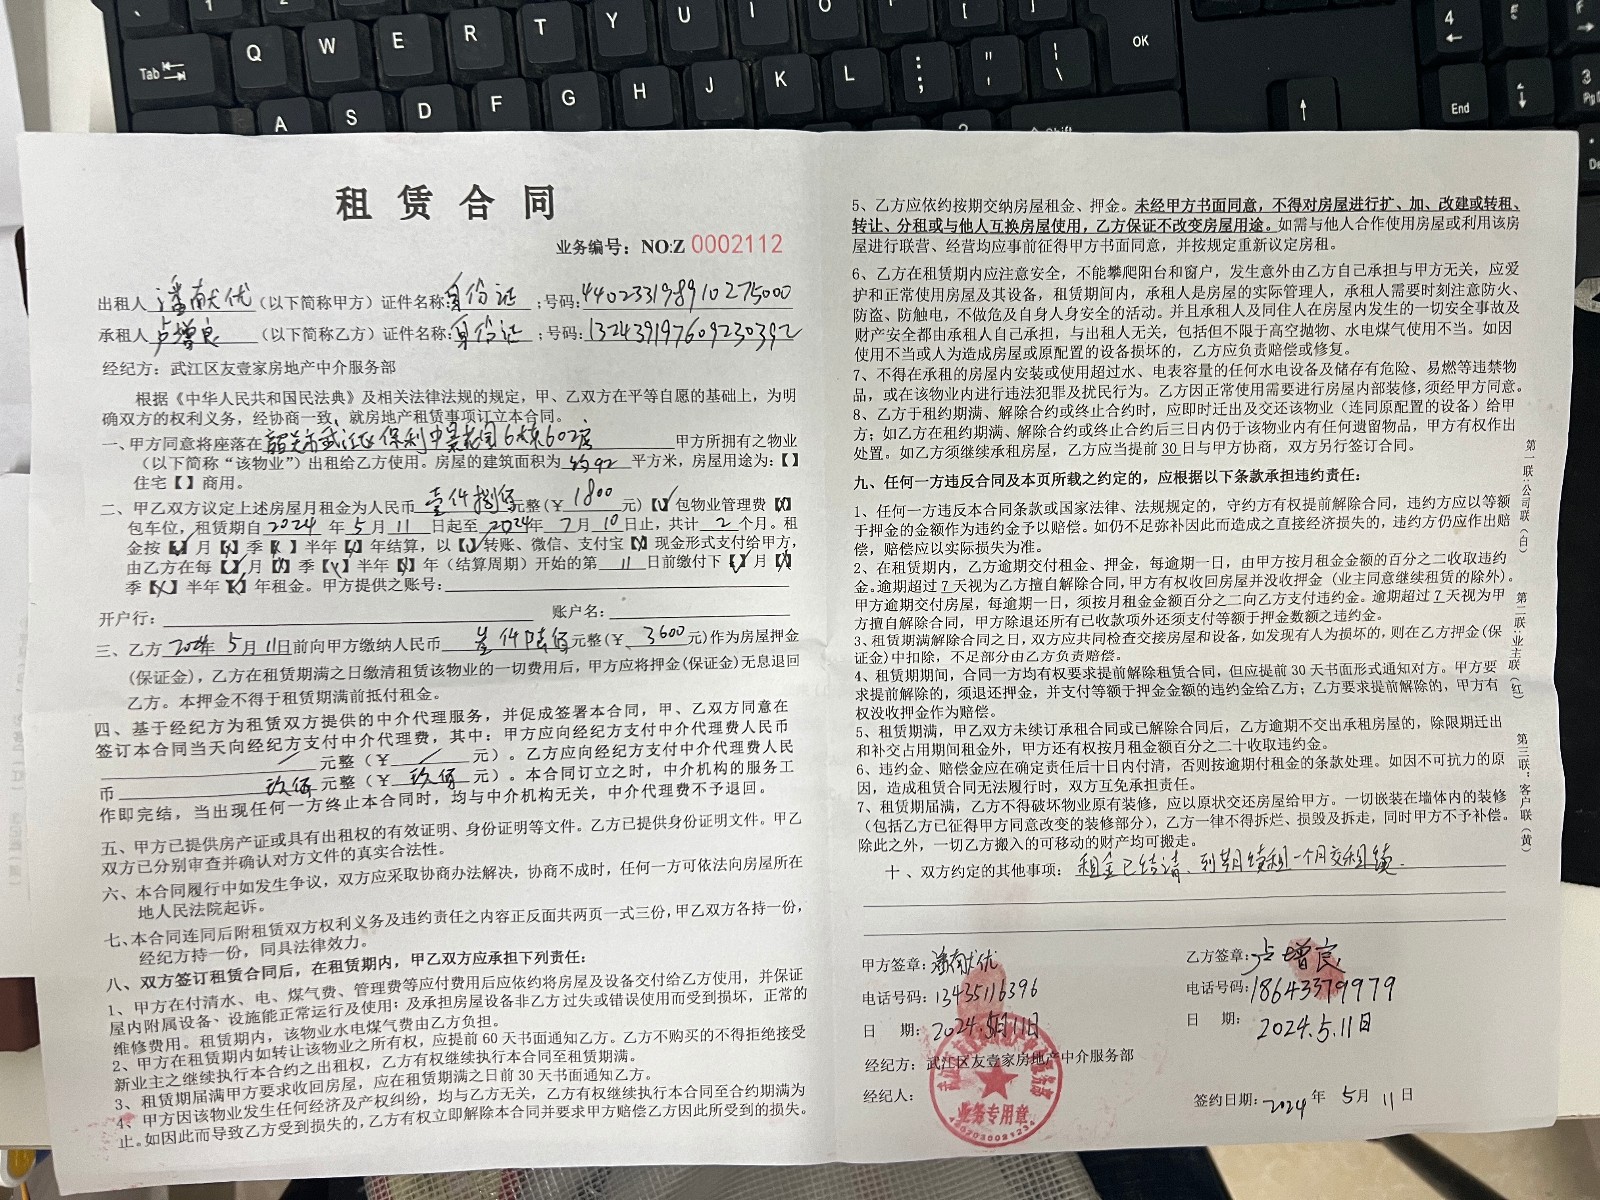 Tab
Q
W
E
R
T
Y
U
I
O
[
]
OK
4
A
S
D
F
G
H
J
K
L
End
3
租赁合同
业务编号：NO:Z 0002112
出租人 潘献优 （以下简称甲方）证件名称：身份证 ；号码：440233198910275000
承租人 卢增良 （以下简称乙方）证件名称：身份证 ；号码：132439197609230392
经纪方：武江区友壹家房地产中介服务部
根据《中华人民共和国民法典》及相关法律法规的规定，甲、乙双方在平等自愿的基础上，为明
确双方的权利义务，经协商一致，就房地产租赁事项订立本合同。
一、甲方同意将座落在 韶关市武江区保利中景花园6栋602房 甲方所拥有之物业
（以下简称“该物业”）出租给乙方使用。房屋的建筑面积为 约92 平方米，房屋用途为：【 】
住宅【 】商用。
二、甲乙双方议定上述房屋月租金为人民币 壹仟捌佰 元整（￥ 1800 元）【√】包物业管理费【X】
包车位，租赁期自 2024 年 5 月 11 日起至 2024年 7 月 10 日止，共计 2 个月。租
金按【√】月【X】季【X】半年【X】年结算，以【√】转账、微信、支付宝【X】现金形式支付给甲方，
由乙方在每【√】月【X】季【X】半年【X】年（结算周期）开始的第 11 日前缴付下【√】月【X】
季【X】半年【X】年租金。甲方提供之账号：
开户行： 账户名：
三、乙方 2024年 5月11日前向甲方缴纳人民币 叁仟陆佰元整（￥ 3600 元）作为房屋押金
（保证金），乙方在租赁期满之日缴清租赁该物业的一切费用后，甲方应将押金(保证金)无息退回
乙方。本押金不得于租赁期满前抵付租金。
四、基于经纪方为租赁双方提供的中介代理服务，并促成签署本合同，甲、乙双方同意在
签订本合同当天向经纪方支付中介代理费，其中：甲方应向经纪方支付中介代理费人民币
／ 元整（￥ ／ 元）。乙方应向经纪方支付中介代理费人民
币 玖佰 元整（￥ 玖佰 元）。本合同订立之时，中介机构的服务工
作即完结，当出现任何一方终止本合同时，均与中介机构无关，中介代理费不予退回。
五、甲方已提供房产证或具有出租权的有效证明、身份证明等文件。乙方已提供身份证明文件。甲乙
双方已分别审查并确认对方文件的真实合法性。
六、本合同履行中如发生争议，双方应采取协商办法解决，协商不成时，任何一方可依法向房屋所在
地人民法院起诉。
七、本合同连同后附租赁双方权利义务及违约责任之内容正反面共两页一式三份，甲乙双方各持一份，
经纪方持一份，同具法律效力。
八、双方签订租赁合同后，在租赁期内，甲乙双方应承担下列责任：
1、甲方在付清水、电、煤气费、管理费等应付费用后应依约将房屋及设备交付给乙方使用，并保证
屋内附属设备、设施能正常运行及使用；及承担房屋设备非乙方过失或错误使用而受到损坏，正常的
维修费用。租赁期内，该物业水电煤气费由乙方负担。
2、甲方在租赁期内如转让该物业之所有权，应提前60天书面通知乙方。乙方不购买的不得拒绝接受
新业主之继续执行本合约之出租权，乙方有权继续执行本合同至租赁期满。
3、租赁期届满甲方要求收回房屋，应在租赁期满之日前30天书面通知乙方。
4、甲方因该物业发生任何经济及产权纠纷，均与乙方无关，乙方有权继续执行本合同至合约期满为
止。如因此而导致乙方受到损失的，乙方有权立即解除本合同并要求甲方赔偿乙方因此所受到的损失。
5、乙方应依约按期交纳房屋租金、押金。未经甲方书面同意，不得对房屋进行扩、加、改建或转租、
转让、分租或与他人互换房屋使用，乙方保证不改变房屋用途。如需与他人合作使用房屋或利用该房
屋进行联营、经营均应事前征得甲方书面同意，并按规定重新议定房租。
6、乙方在租赁期内应注意安全，不能攀爬阳台和窗户，发生意外由乙方自己承担与甲方无关，应爱
护和正常使用房屋及其设备，租赁期间内，承租人是房屋的实际管理人，承租人需要时刻注意防火、
防盗、防触电，不做危及自身人身安全的活动。并且承租人及同住人在房屋内发生的一切安全事故及
财产安全都由承租人自己承担，与出租人无关，包括但不限于高空抛物、水电煤气使用不当。如因
使用不当或人为造成房屋或原配置的设备损坏的，乙方应负责赔偿或修复。
7、不得在承租的房屋内安装或使用超过水、电表容量的任何水电设备及储存有危险、易燃等违禁物
品，或在该物业内进行违法犯罪及扰民行为。乙方因正常使用需要进行房屋内部装修，须经甲方同意。
8、乙方于租约期满、解除合约或终止合约时，应即时迁出及交还该物业（连同原配置的设备）给甲
方；如乙方在租约期满、解除合约或终止合约后三日内仍于该物业内有任何遗留物品，甲方有权作出
处置。如乙方须继续承租房屋，乙方应当提前30日与甲方协商，双方另行签订合同。
九、任何一方违反合同及本页所载之约定的，应根据以下条款承担违约责任：
1、任何一方违反本合同条款或国家法律、法规规定的，守约方有权提前解除合同，违约方应以等额
于押金的金额作为违约金予以赔偿。如仍不足弥补因此而造成之直接经济损失的，违约方仍应作出赔
偿，赔偿应以实际损失为准。
2、在租赁期内，乙方逾期交付租金、押金，每逾期一日，由甲方按月租金金额的百分之二收取违约
金。逾期超过7天视为乙方擅自解除合同，甲方有权收回房屋并没收押金（业主同意继续租赁的除外）。
甲方逾期交付房屋，每逾期一日，须按月租金金额百分之二向乙方支付违约金。逾期超过7天视为甲
方擅自解除合同，甲方除退还所有已收款项外还须支付等额于押金数额之违约金。
3、租赁期满解除合同之日，双方应共同检查交接房屋和设备，如发现有人为损坏的，则在乙方押金(保
证金)中扣除，不足部分由乙方负责赔偿。
4、租赁期期间，合同一方均有权要求提前解除租赁合同，但应提前30天书面形式通知对方。甲方要
求提前解除的，须退还押金，并支付等额于押金金额的违约金给乙方；乙方要求提前解除的，甲方有
权没收押金作为赔偿。
5、租赁期满，甲乙双方未续订承租合同或已解除合同后，乙方逾期不交出承租房屋的，除限期迁出
和补交占用期间租金外，甲方还有权按月租金额百分之二十收取违约金。
6、违约金、赔偿金应在确定责任后十日内付清，否则按逾期付租金的条款处理。如因不可抗力的原
因，造成租赁合同无法履行时，双方互免承担责任。
7、租赁期届满，乙方不得破坏物业原有装修，应以原状交还房屋给甲方。一切嵌装在墙体内的装修
（包括乙方已征得甲方同意改变的装修部分），乙方一律不得拆烂、损毁及拆走，同时甲方不予补偿。
除此之外，一切乙方搬入的可移动的财产均可搬走。
十、双方约定的其他事项： 租金已结清、到期续租一个月交租续
甲方签章：潘献优
乙方签章：卢增良
电话号码：13435116396
电话号码：18643379979
日 期：2024.5月11日
日 期：2024.5.11日
经纪方：武江区友壹家房地产中介服务部
经纪人：
签约日期：2024 年 5 月 11 日
业务专用章
第一联：公司联（白）
第二联：业主联（红）
第三联：客户联（黄）